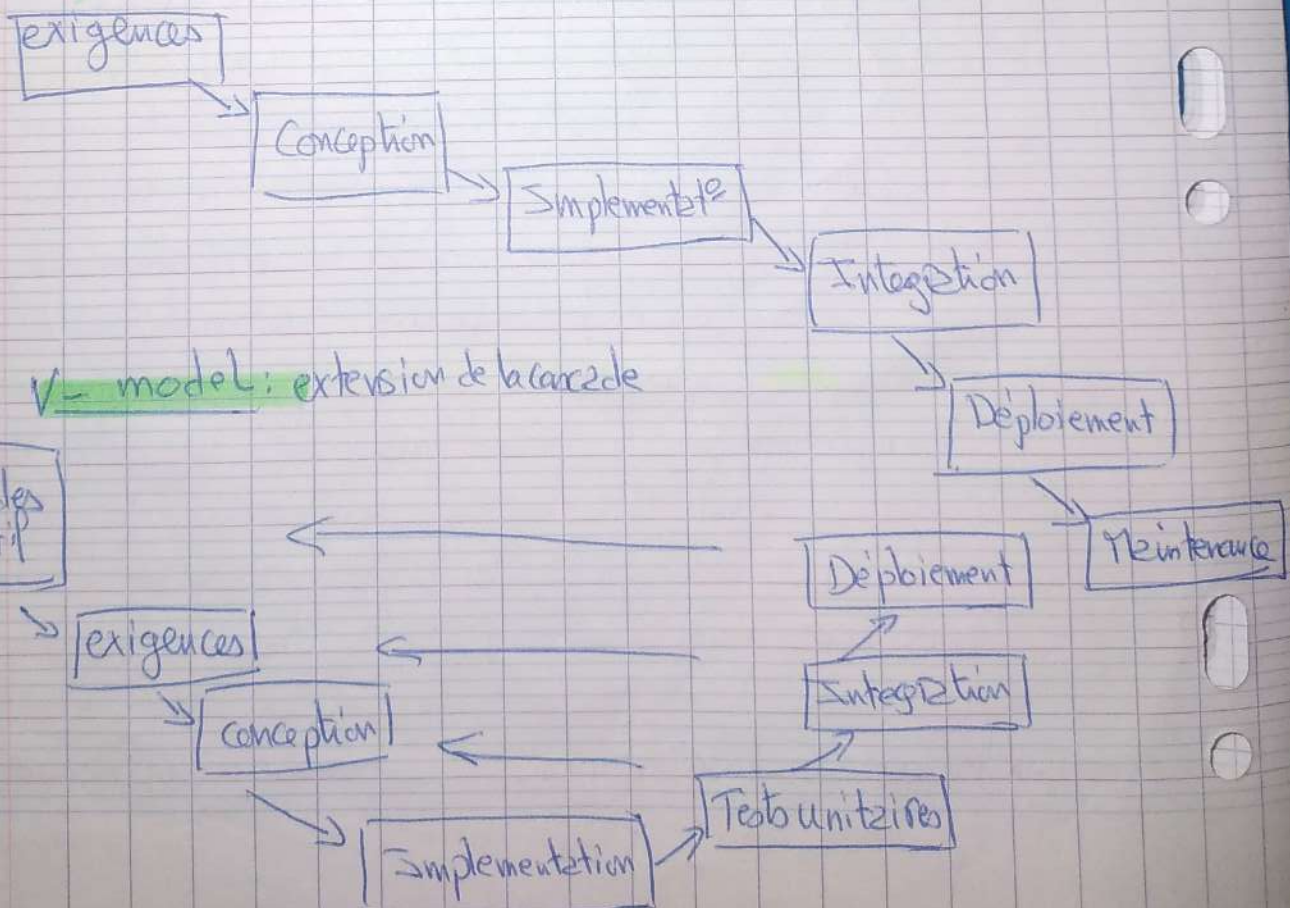 exigences
Conception
Implementat°
Integration
Déploiement
Maintenance
V- model: extension de la carcade
les
exigences
conception
Implementation
Tests unitaires
Integration
Déploiement